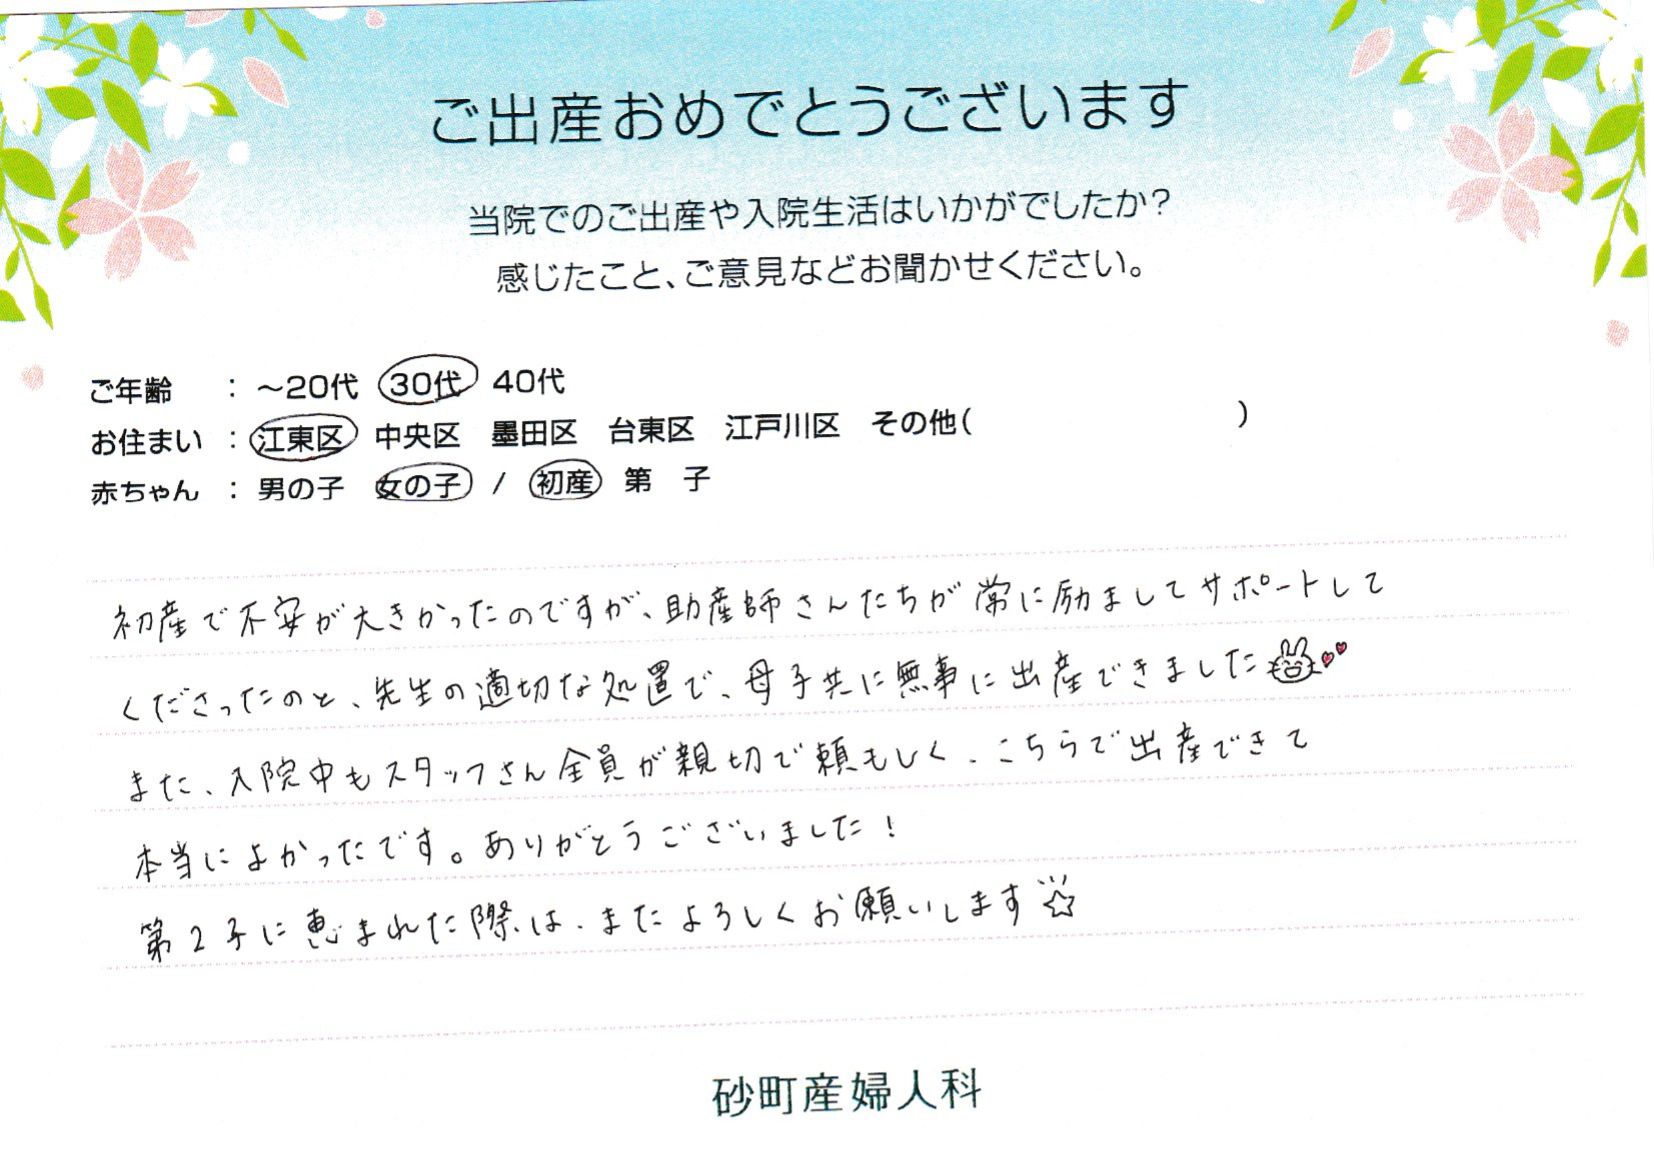 ご出産おめでとうございます
当院でのご出産や入院生活はいかがでしたか？
感じたこと、ご意見などお聞かせください。
ご年齢 ： ～20代 30代 40代
お住まい ： 江東区 中央区 墨田区 台東区 江戸川区 その他( )
赤ちゃん ： 男の子 女の子 / 初産 第 子
初産で不安が大きかったのですが、助産師さんたちが常に励ましてサポートして
くださったのと、先生の適切な処置で、母子共に無事に出産できました
また、入院中もスタッフさん全員が親切で頼もしく、こちらで出産できて
本当によかったです。ありがとうございました！
第2子に恵まれた際は、またよろしくお願いします☆
砂町産婦人科